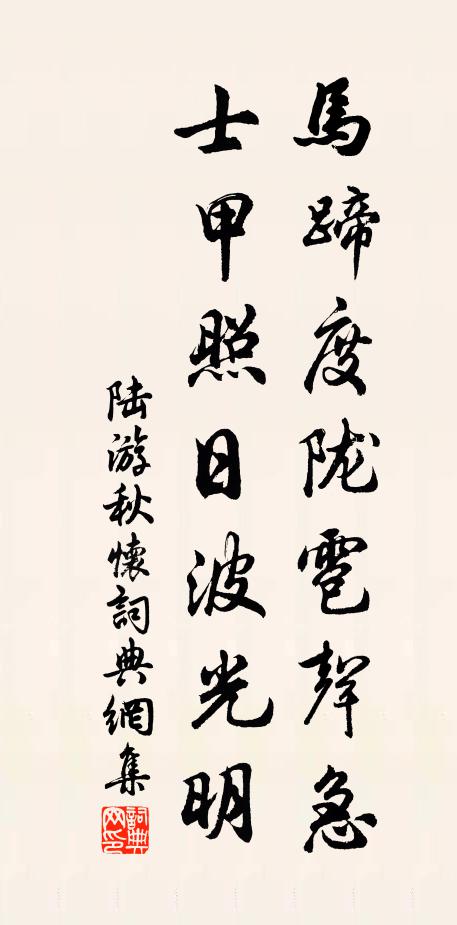 馬蹄度陇雹聲急
士甲照日波光明
陆游秋懷詞典網集
詞典網印